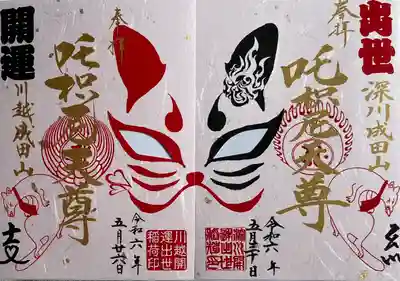 出世
奉拝
吒枳尼天尊
深川成田山
令和六年
五月三十日
開運
奉拝
吒枳尼天尊
川越成田山
令和六年
五月廿六日
川越開
運出世
稲荷印